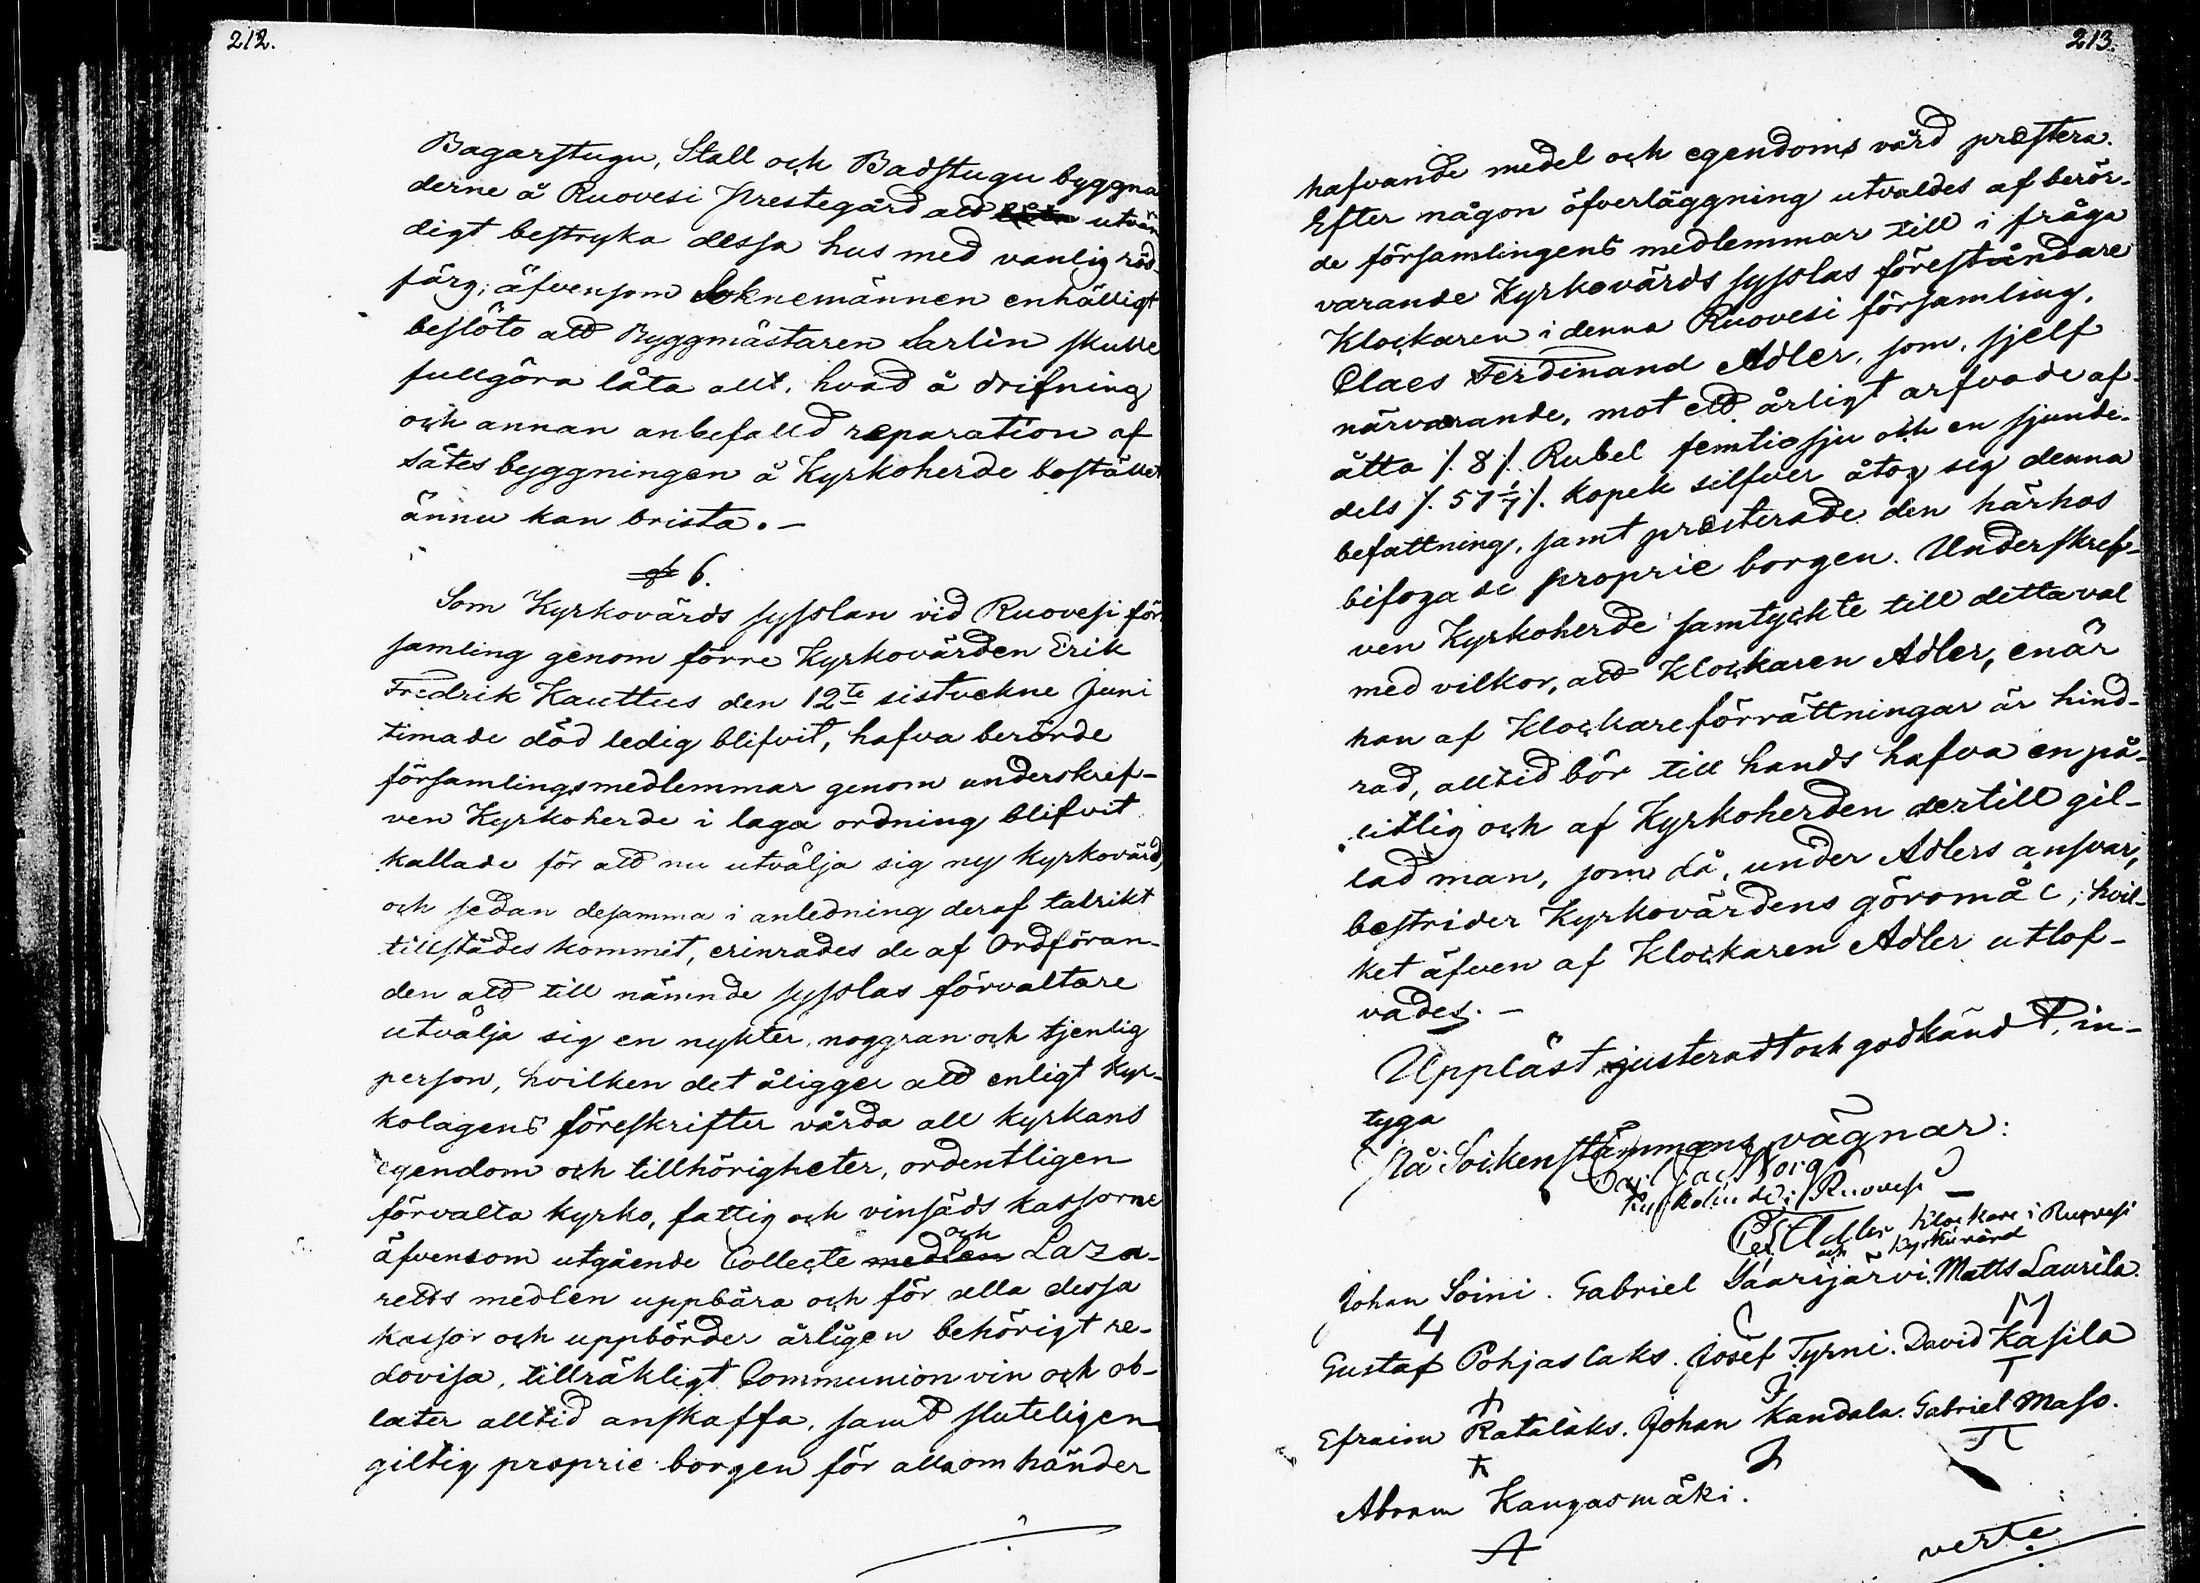 212.
Bagarstugu, Stall och Badstugu byggna
derne å Ruovesi Prestegård att utvän
digt bestryka dessa hus med vanlig röd
färg; äfvensom Soknemännen enhälligt
beslöto att Byggmästaren Sarlin skulle
fullgöra låta allt, hvad å drifning
och annan anbefalld reparation af
sätesbyggningen å Kyrkoherde bostället
ännu kan brista. –
§ 6.
Som Kyrkovärds sysslan vid Ruovesi för
samling genom förre Kyrkovärden Erik
Fredrik Kauttus den 12te sistvekne Juni
timade död ledig blifvit, hafva berörde
församlingsmedlemmar genom underskref-
ven Kyrkoherde i laga ordning blifvit
kallade för att nu utvälja sig ny Kyrkovärd,
och sedan desamma i anledning deraf talrikt
tillstädes kommit, erinrades de af Ordföran-
den att till nämnde sysslas förvaltare
utvälja sig en nykter, noggran och tjenlig
person, hvilken det åligger att enligt kyr-
kolagens föreskrifter vårda all kyrkans
egendom och tillhörigheter, ordentligen
förvalta kyrko, fattig och vinsäds kassorne
äfvensom utgående Collecte medlen och Laza-
retts medlen uppbära och för alla dessa
kassor och uppbörder årligen behörigt re-
dovisa, tillräkligt Communion vin och ob-
later alltid anskaffa, samt sluteligen
giltig proprie borgen för alla om händer
213.
hafvande medel och egendoms vård prestera.
Efter någon öfverläggning utvaldes af berör-
de församlingens medlemmar till i fråga
varande Kyrkovärds sysslas föreståndare
Klockaren i denna Ruovesi församling,
Claes Ferdinand Adler, som, sjelf
närvarande, mot ett årligt arfvode af
åtta /. 8 /. Rubel femtiosju och en sjunde-
dels /. 57 1/7 /. kopek silfver åtog sig denna
befattning, samt presterade den härhos
bifogade proprie borgen. Underskref-
ven Kyrkoherde samtyckte till detta val
med vilkor, att Klockaren Adler, enär
han af Klockareförrättningar är hind-
rad, alltid bör till hands hafva en på-
litlig och af Kyrkoherden dertill gil-
lad man, som då, under Adlers ansvar,
bestrider Kyrkovärdens göromål; hvil-
ket äfven af Klockaren Adler utlof-
vades. –
Uppläst, justeradt och godkändt, in-
tyga
På Sockenstämmans vägnar:
Kyrkoherde i Ruovesi
Adler Klockare i Ruovesi
och Kyrkovärd
Johan Soini. Gabriel Saarijärvi. Matts Laurila.
Gustaf Pohjaslaks. Josef Tyrni. David Kasila
Efraim Ratalaks. Johan Kandala. Gabriel Maso.
Abram Kangasmäki.
verte